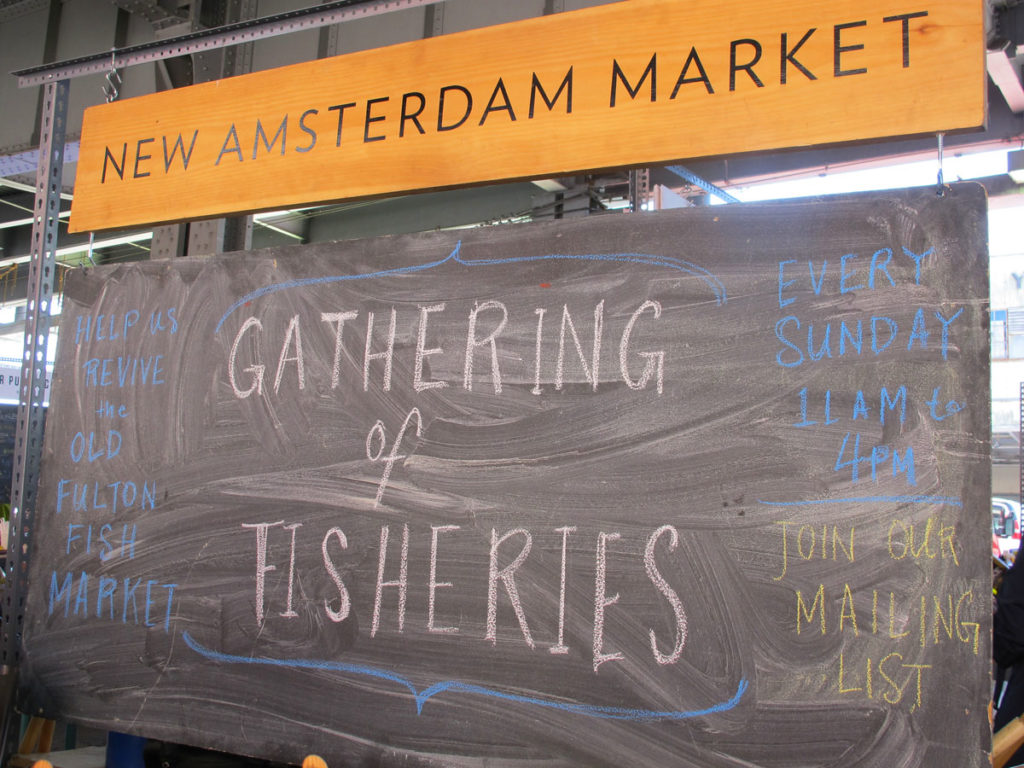 NEW AMSTERDAM MARKET
HELP US
REVIVE
the
OLD
FULTON
FISH
MARKET
GATHERING
of
FISHERIES
EVERY
SUNDAY
11AM to
4PM
JOIN OUR
MAILING
LIST